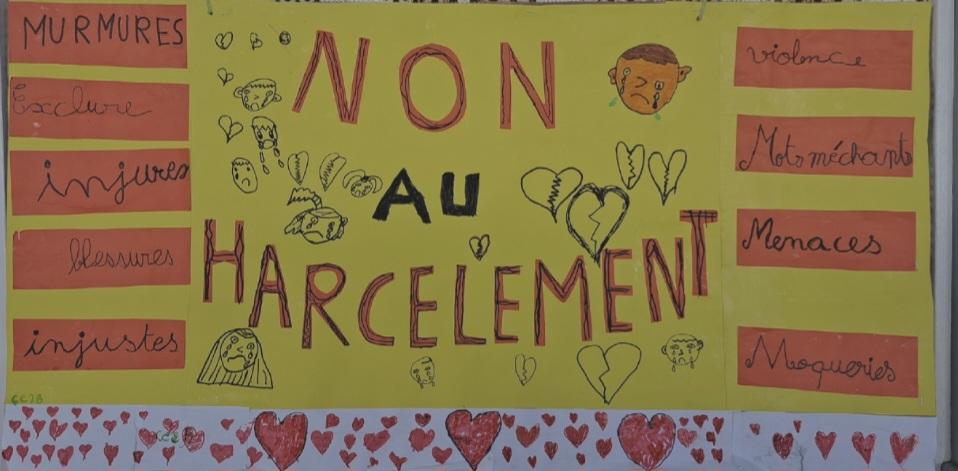 MURMURES
Exclure
injures
blessures
injustes
NON
AU
HARCELEMENT
violence
Mots méchants
Menaces
Moqueries